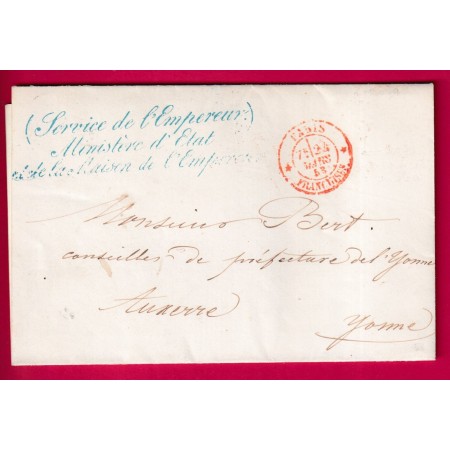 (Service de l'Empereur)
Ministère d'Etat
et de la Maison de l'Empereur
PARIS
24
MARS
FRANCHISES
Monsieur Bert.
conseiller de préfecture de l'Yonne
Auxerre
Yonne